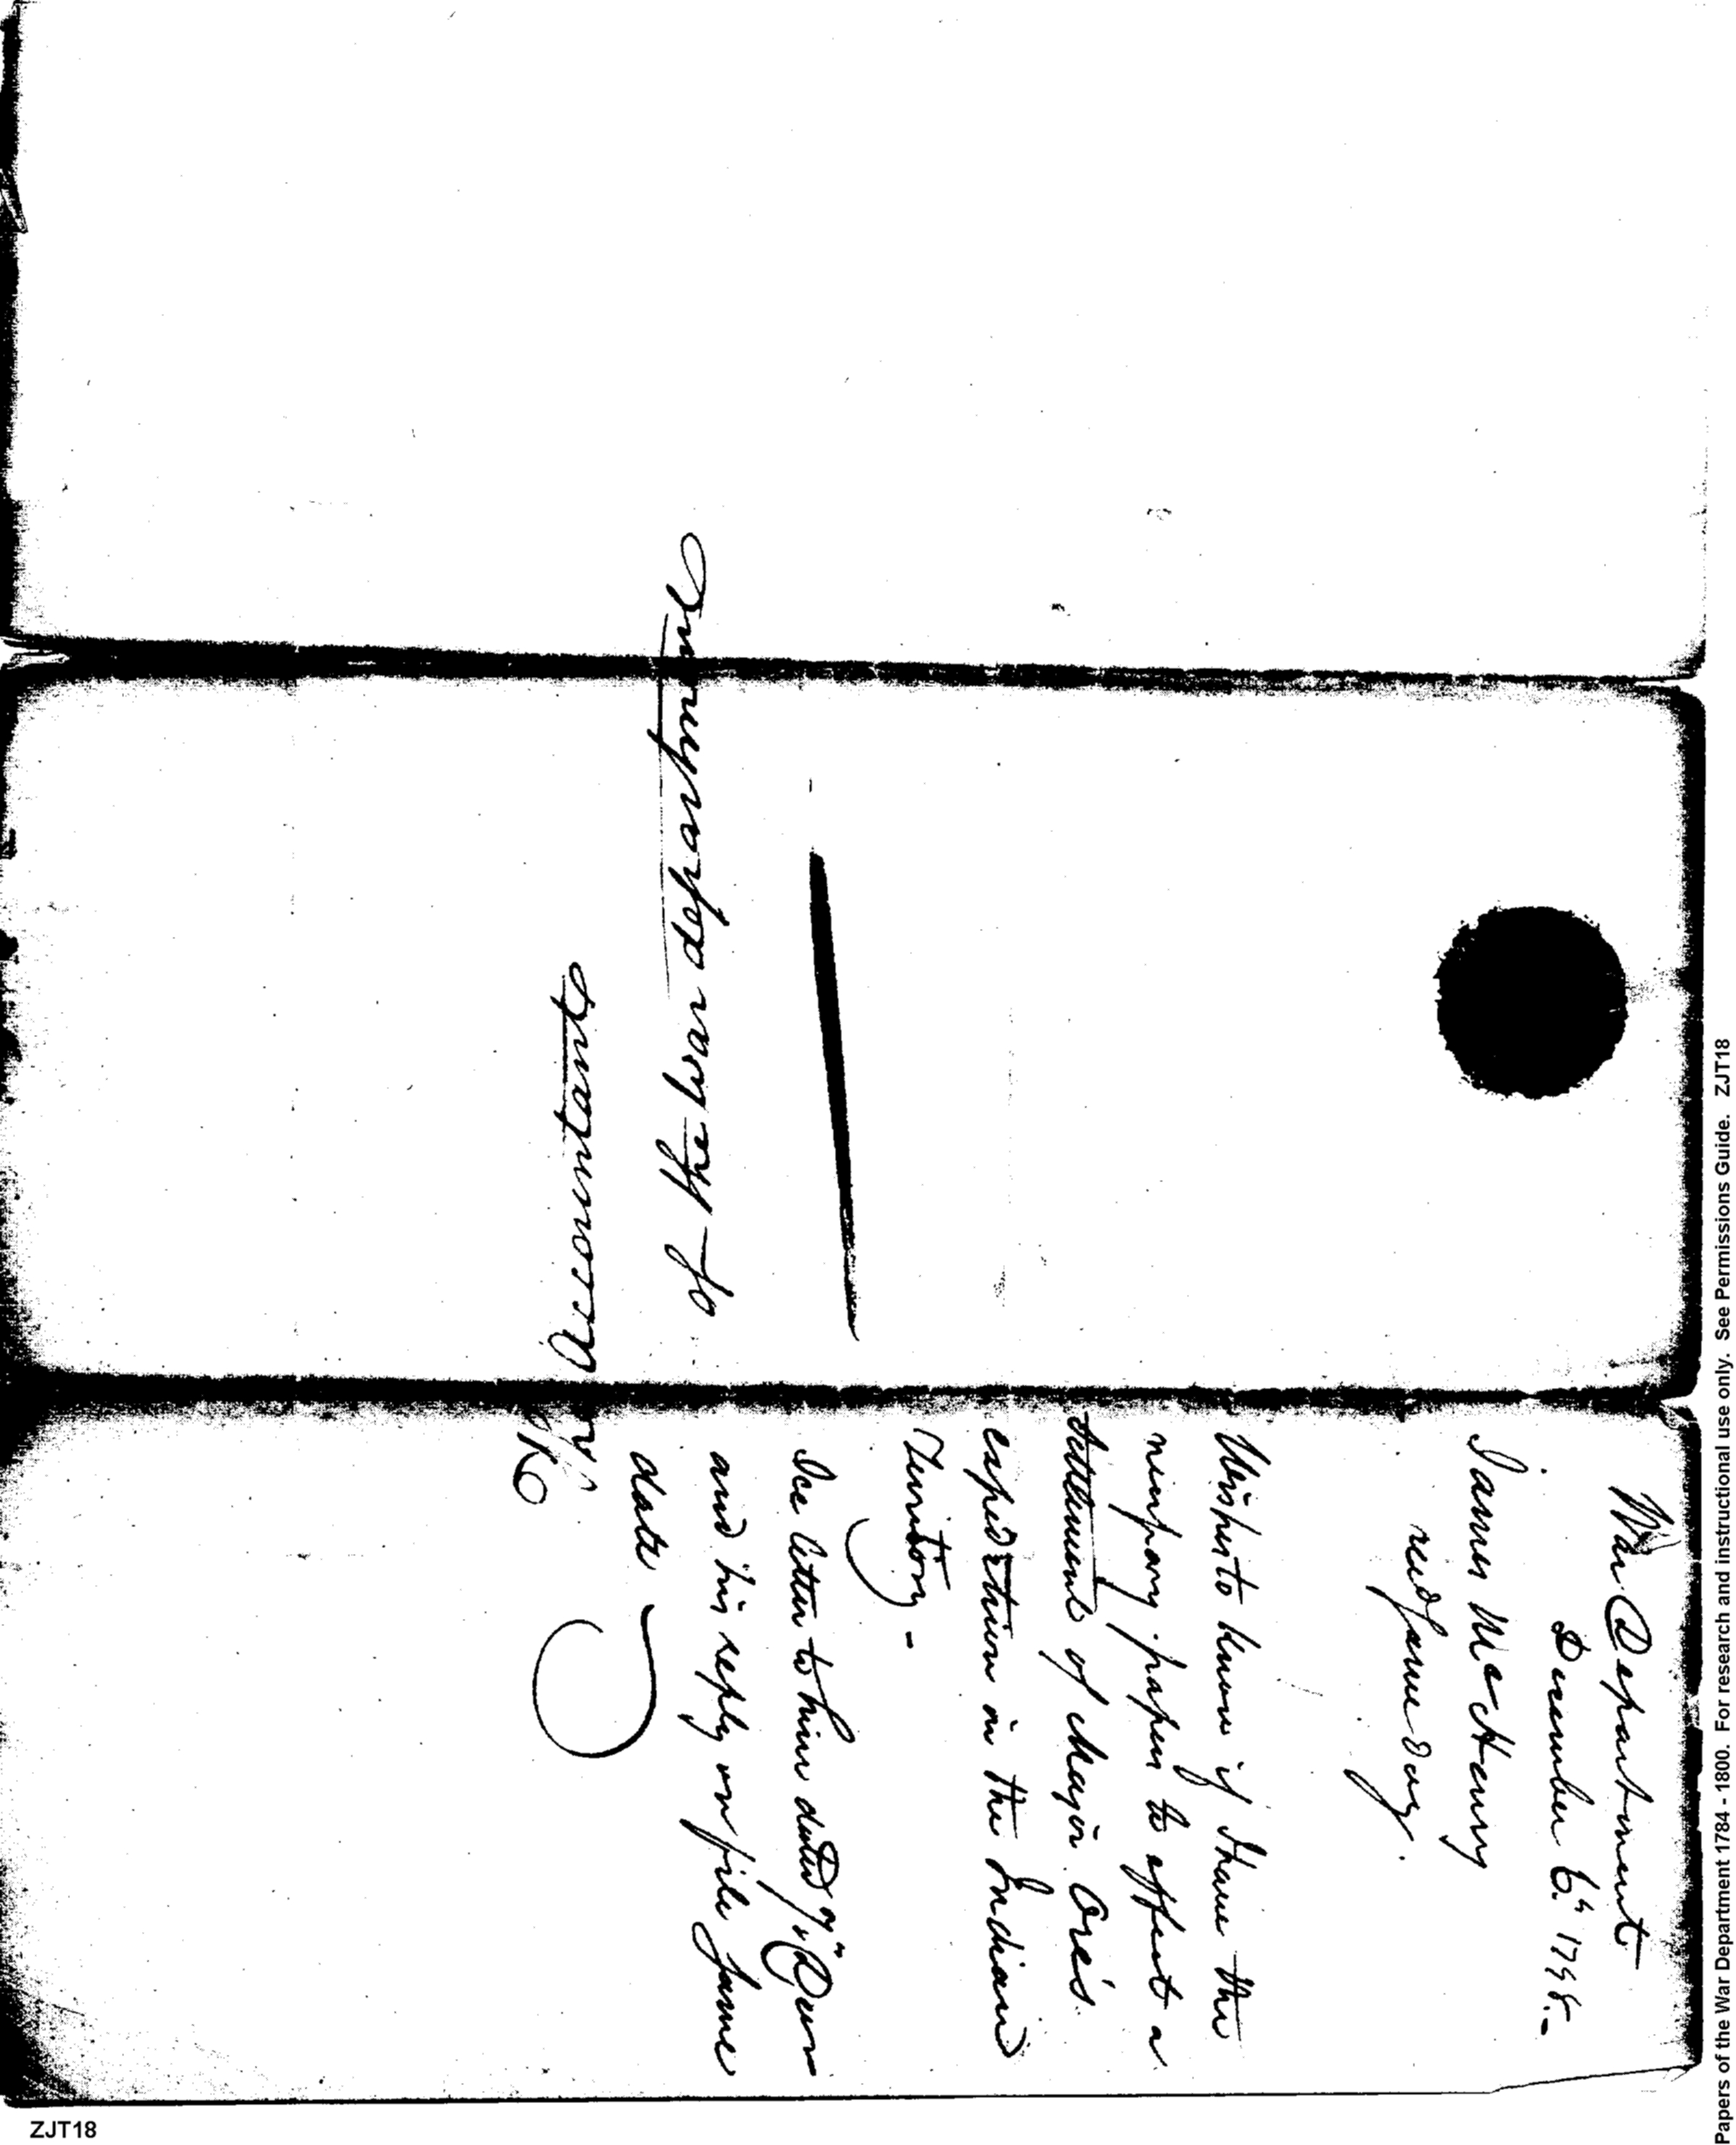 The Accountant
of the war department
War Department
December 6th 1798.-
James McHenry
recd same day.
Wishes to know if I have the
necessary papers to effect a
settlement of Major Ore's
expedition in the Indian
Territory -
See letter to him dated 7th Decr
and his reply on file same
date
Papers of the War Department 1784 - 1800. For research and instructional use only. See Permissions Guide. ZJT18
ZJT18